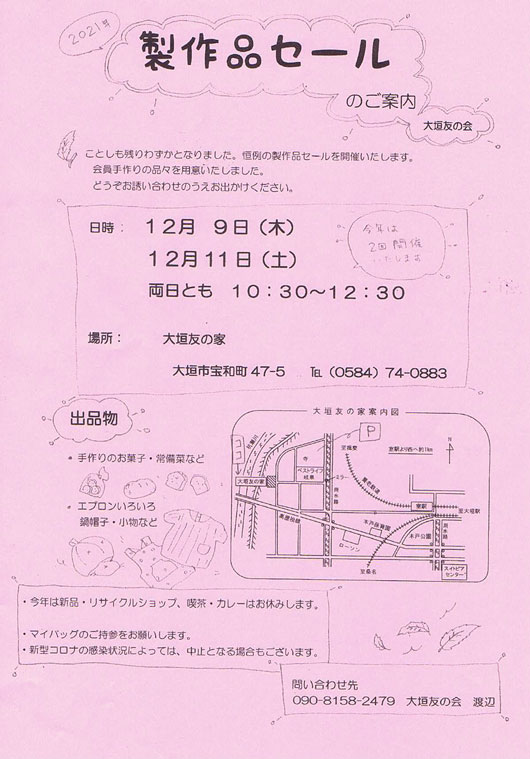 2021年
製作品セール
のご案内
大垣友の会
ことしも残りわずかとなりました。恒例の製作品セールを開催いたします。
会員手作りの品々を用意いたしました。
どうぞお誘い合わせのうえお出かけください。
日時： １２月　９日（木）
１２月１１日（土）
両日とも　１０：３０～１２：３０
今年は
2回開催
いたします
場所：　大垣友の家
大垣市宝和町47-5　℡（0584）74-0883
出品物
・手作りのお菓子・常備菜など
・エプロンいろいろ
鍋帽子・小物など
大垣友の家案内図
P
ココ
大垣友の家
寺
ベストライフ
岐阜
至揖斐
養老鉄道
室駅より西へ約1km
N
用水路
室駅
至大垣駅
用水路
木戸保育園
木戸公園
ローソン
至桑名
スイトピア
センター
・今年は新品・リサイクルショップ、喫茶・カレーはお休みします。
・マイバッグのご持参をお願いします。
・新型コロナの感染状況によっては、中止となる場合もございます。
問い合わせ先
090-8158-2479　大垣友の会　渡辺